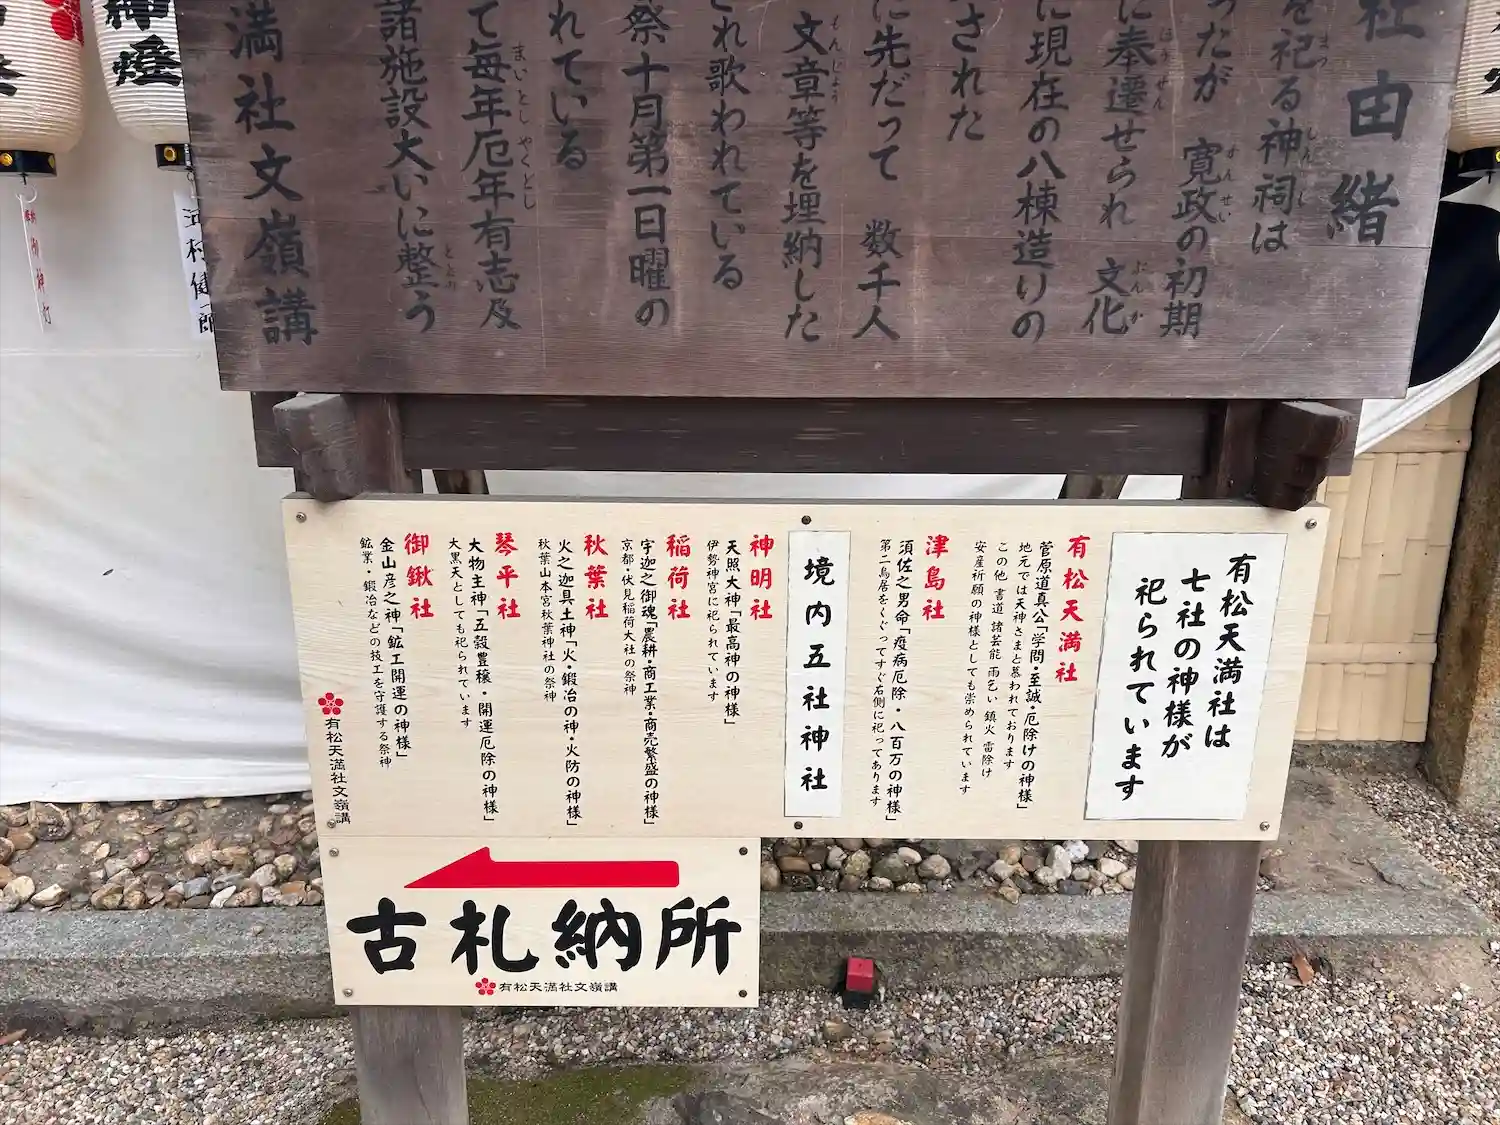 社由緒
を祀る神祠は
ったが 寛政の初期
に奉遷せられ 文化
に現在の八棟造りの
された
に先だって 数千人
文章等を埋納した
され歌われている
祭十月第一日曜の
れている
て毎年厄年有志及
諸施設大いに整う
満社文嶺講
神燈
有松天満社は
七社の神様が
祀られています
有松天満社
菅原道真公「学問・至誠・厄除けの神様」
地元では天神さまと慕われております
この他 書道 諸芸能 雨乞い 鎮火 雷除け
安産祈願の神様としても崇められています
津島社
須佐之男命「疫病厄除・八百万の神様」
第二鳥居をくぐってすぐ右側に祀ってあります
境内五社神社
神明社
天照大神「最高神の神様」
伊勢神宮に祀られています
稲荷社
宇迦之御魂「農耕・商工業・商売繁盛の神様」
京都・伏見稲荷大社の祭神
秋葉社
火之迦具土神「火・鍛冶の神・火防の神様」
秋葉山本宮秋葉神社の祭神
琴平社
大物主神「五穀豊穣・開運厄除の神様」
大黒天としても祀られています
御鍬社
金山彦之神「鉱工開運の神様」
鉱業・鍛冶などの技工を守護する祭神
有松天満社文嶺講
古札納所
有松天満社文嶺講